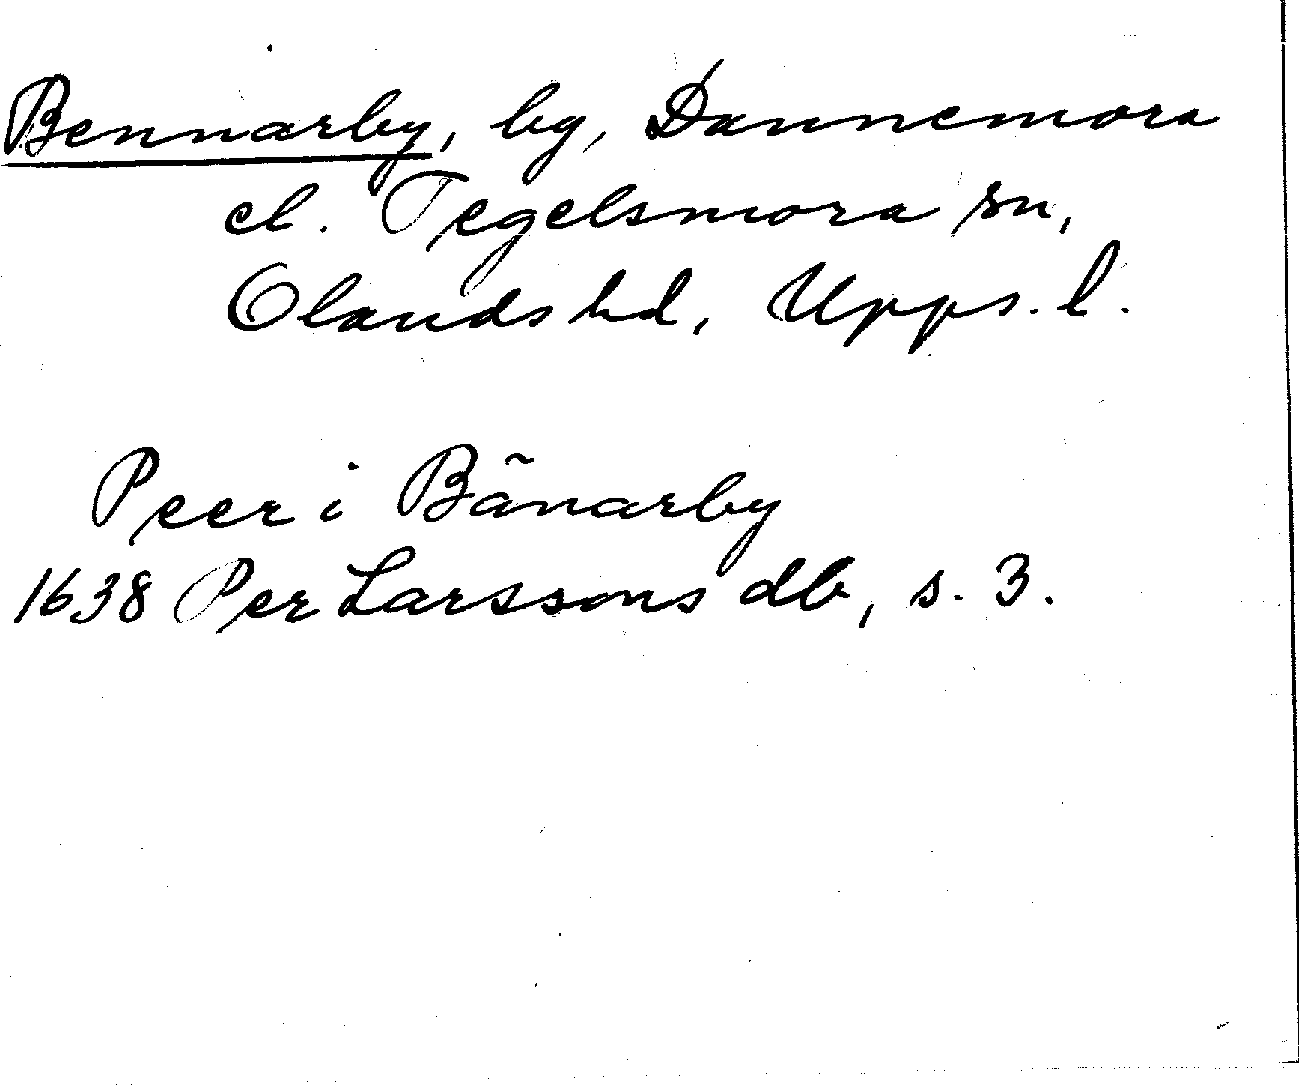 Bennarby, by, Dannemora
el. Tegelsmora sn,
Olands hd, Upps. l.
Peer i Bãnarby
1638 Per Larssons db, s. 3.